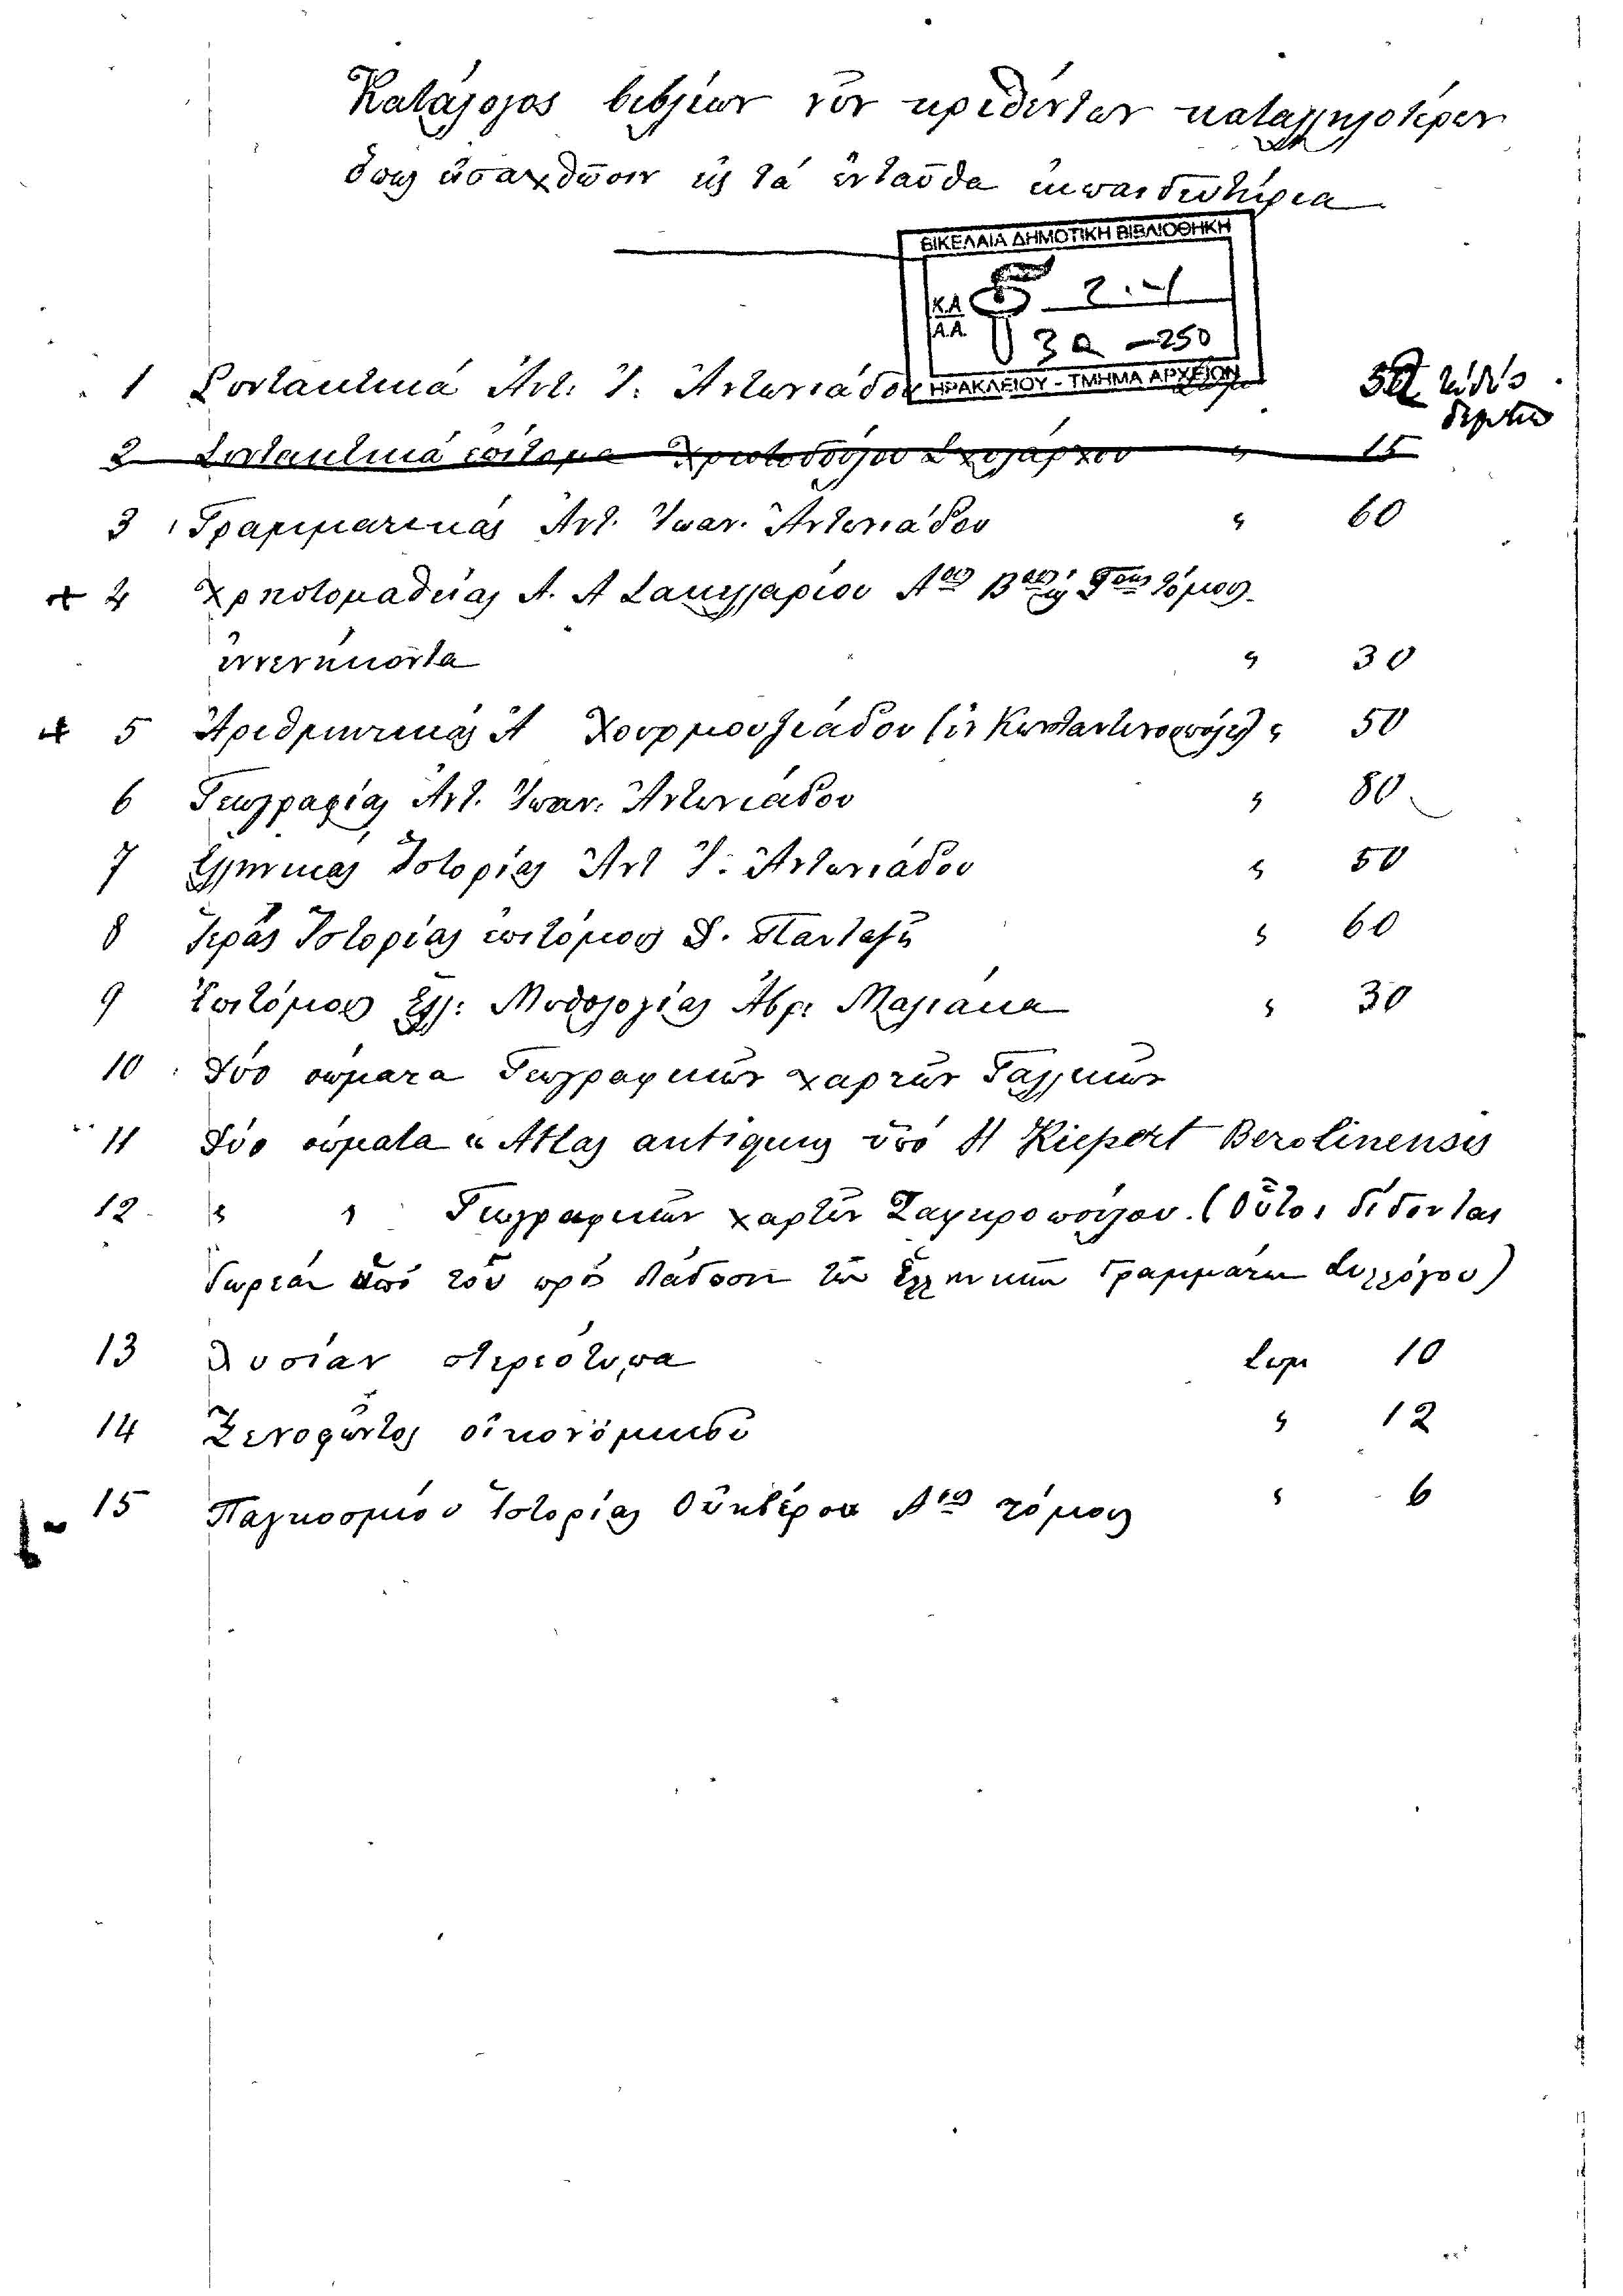 Κατάλογος βιβλίων τῶν κριθέντων καταλληλοτέρων
ὅπως εἰσαχθῶσιν εἰς τὰ ἐνταῦθα ἐκπαιδευτήρια
ΒΙΚΕΛΑΙΑ ΔΗΜΟΤΙΚΗ ΒΙΒΛΙΟΘΗΚΗ
Κ.Α 5 2-1
Α.Α. 3α -250
ΗΡΑΚΛΕΙΟΥ - ΤΜΗΜΑ ΑΡΧΕΙΩΝ
1 Συντακτικά Ἀντ. Ἰ. Ἀντωνιάδου
2 Συντακτικά ἐπίτομα Χριστοδούλου Σχολάρχου " 15
3 Γραμματικάς Ἀντ. Ἰωαν. Ἀντωνιάδου " 60
4 Χρηστομαθείας Α. Α Σακελλαρίου Αου Βου καί Γου τόμου
ἐννενήκοντα " 30
5 Ἀριθμητικάς Ἀ Χουρμουζιάδου (ἐν Κωνσταντινουπόλει) " 50
6 Γεωγραφίας Ἀντ. Ἰωαν. Ἀντωνιάδου " 80
7 Ἑλληνικάς Ἱστορίας Ἀντ Ἰ. Ἀντωνιάδου " 50
8 Ἱεράς Ἱστορίας ἐπιτόμους Δ. Πανταζῆ " 60
9 Ἐπιτόμους Ἑλλ. Μυθολογίας Ἀβρ. Μαλιάκα " 30
10 Δύο σώματα Γεωγραφικῶν χαρτῶν Γαλλικῶν
11 Δύο σώματα " Atlas antiquus ὑπό H Kiepert Berolinensis
12 " " Γεωγραφικῶν χαρτῶν Ζαγκροπούλου. (Οὗτοι δίδονται
δωρεάν ἀπό τοῦ πρός διάδοσιν τῶν Ἑλληνικῶν Γραμμάτων Συλλόγου)
13 Λυσίαν στερεότυπα Σωμ 10
14 Ξενοφῶντος οἰκονομικοῦ " 12
15 Παγκοσμίου Ἱστορίας Οὐεβέρου Αου τόμους " 6